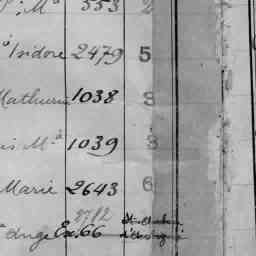 Mª 553 2
Isidore 2479 5
Mathurin 1038 3
is Mª 1039 3
Marie 2643 6
3782
Ange Ex. 66